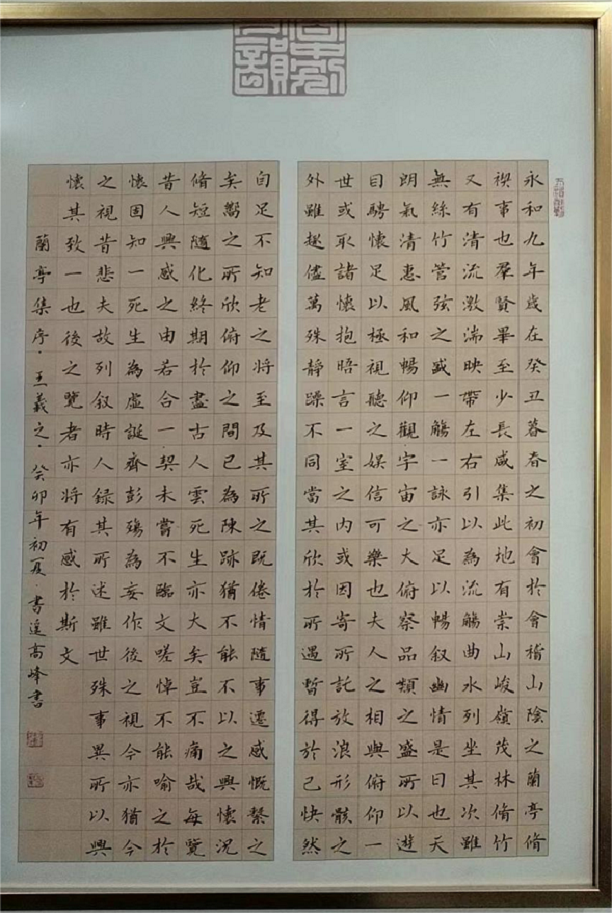 永和九年歲在癸丑暮春之初會於會稽山陰之蘭亭脩
禊事也羣賢畢至少長咸集此地有崇山峻嶺茂林脩竹
又有清流激湍映帶左右引以為流觴曲水列坐其次雖
無絲竹管弦之盛一觴一詠亦足以暢叙幽情是日也天
朗氣清惠風和暢仰觀宇宙之大俯察品類之盛所以遊
目騁懷足以極視聽之娛信可樂也夫人之相與俯仰一
世或取諸懷抱晤言一室之內或因寄所託放浪形骸之
外雖趣儘萬殊靜躁不同當其欣於所遇暫得於己快然
自足不知老之將至及其所之既倦情隨事遷感慨繫之
矣嚮之所欣俯仰之間已為陳跡猶不能不以之興懷況
脩短隨化終期於盡古人雲死生亦大矣豈不痛哉每覽
昔人興感之由若合一契未嘗不臨文嗟悼不能喻之於
懷固知一死生為虛誕齊彭殤為妄作後之視今亦猶今
之視昔悲夫故列叙時人錄其所述雖世殊事異所以興
懷其致一也後之覽者亦將有感於斯文
蘭亭集序·王羲之·癸卯年初夏·書高峰書